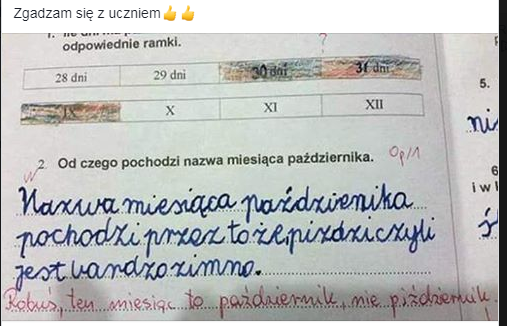 Zgadzam się z uczniem👍👍
odpowiednie ramki.
?
28 dni 29 dni 30 dni 31 dni
IX X XI XII
5.
ni
2. Od czego pochodzi nazwa miesiąca października. 0p/1
6
i w l
Nazwa miesiąca października
pochodzi przez to że, pizdzi czyli
jest bardzo zimno.
Robuś, ten miesiąc to październik, nie piździernik.